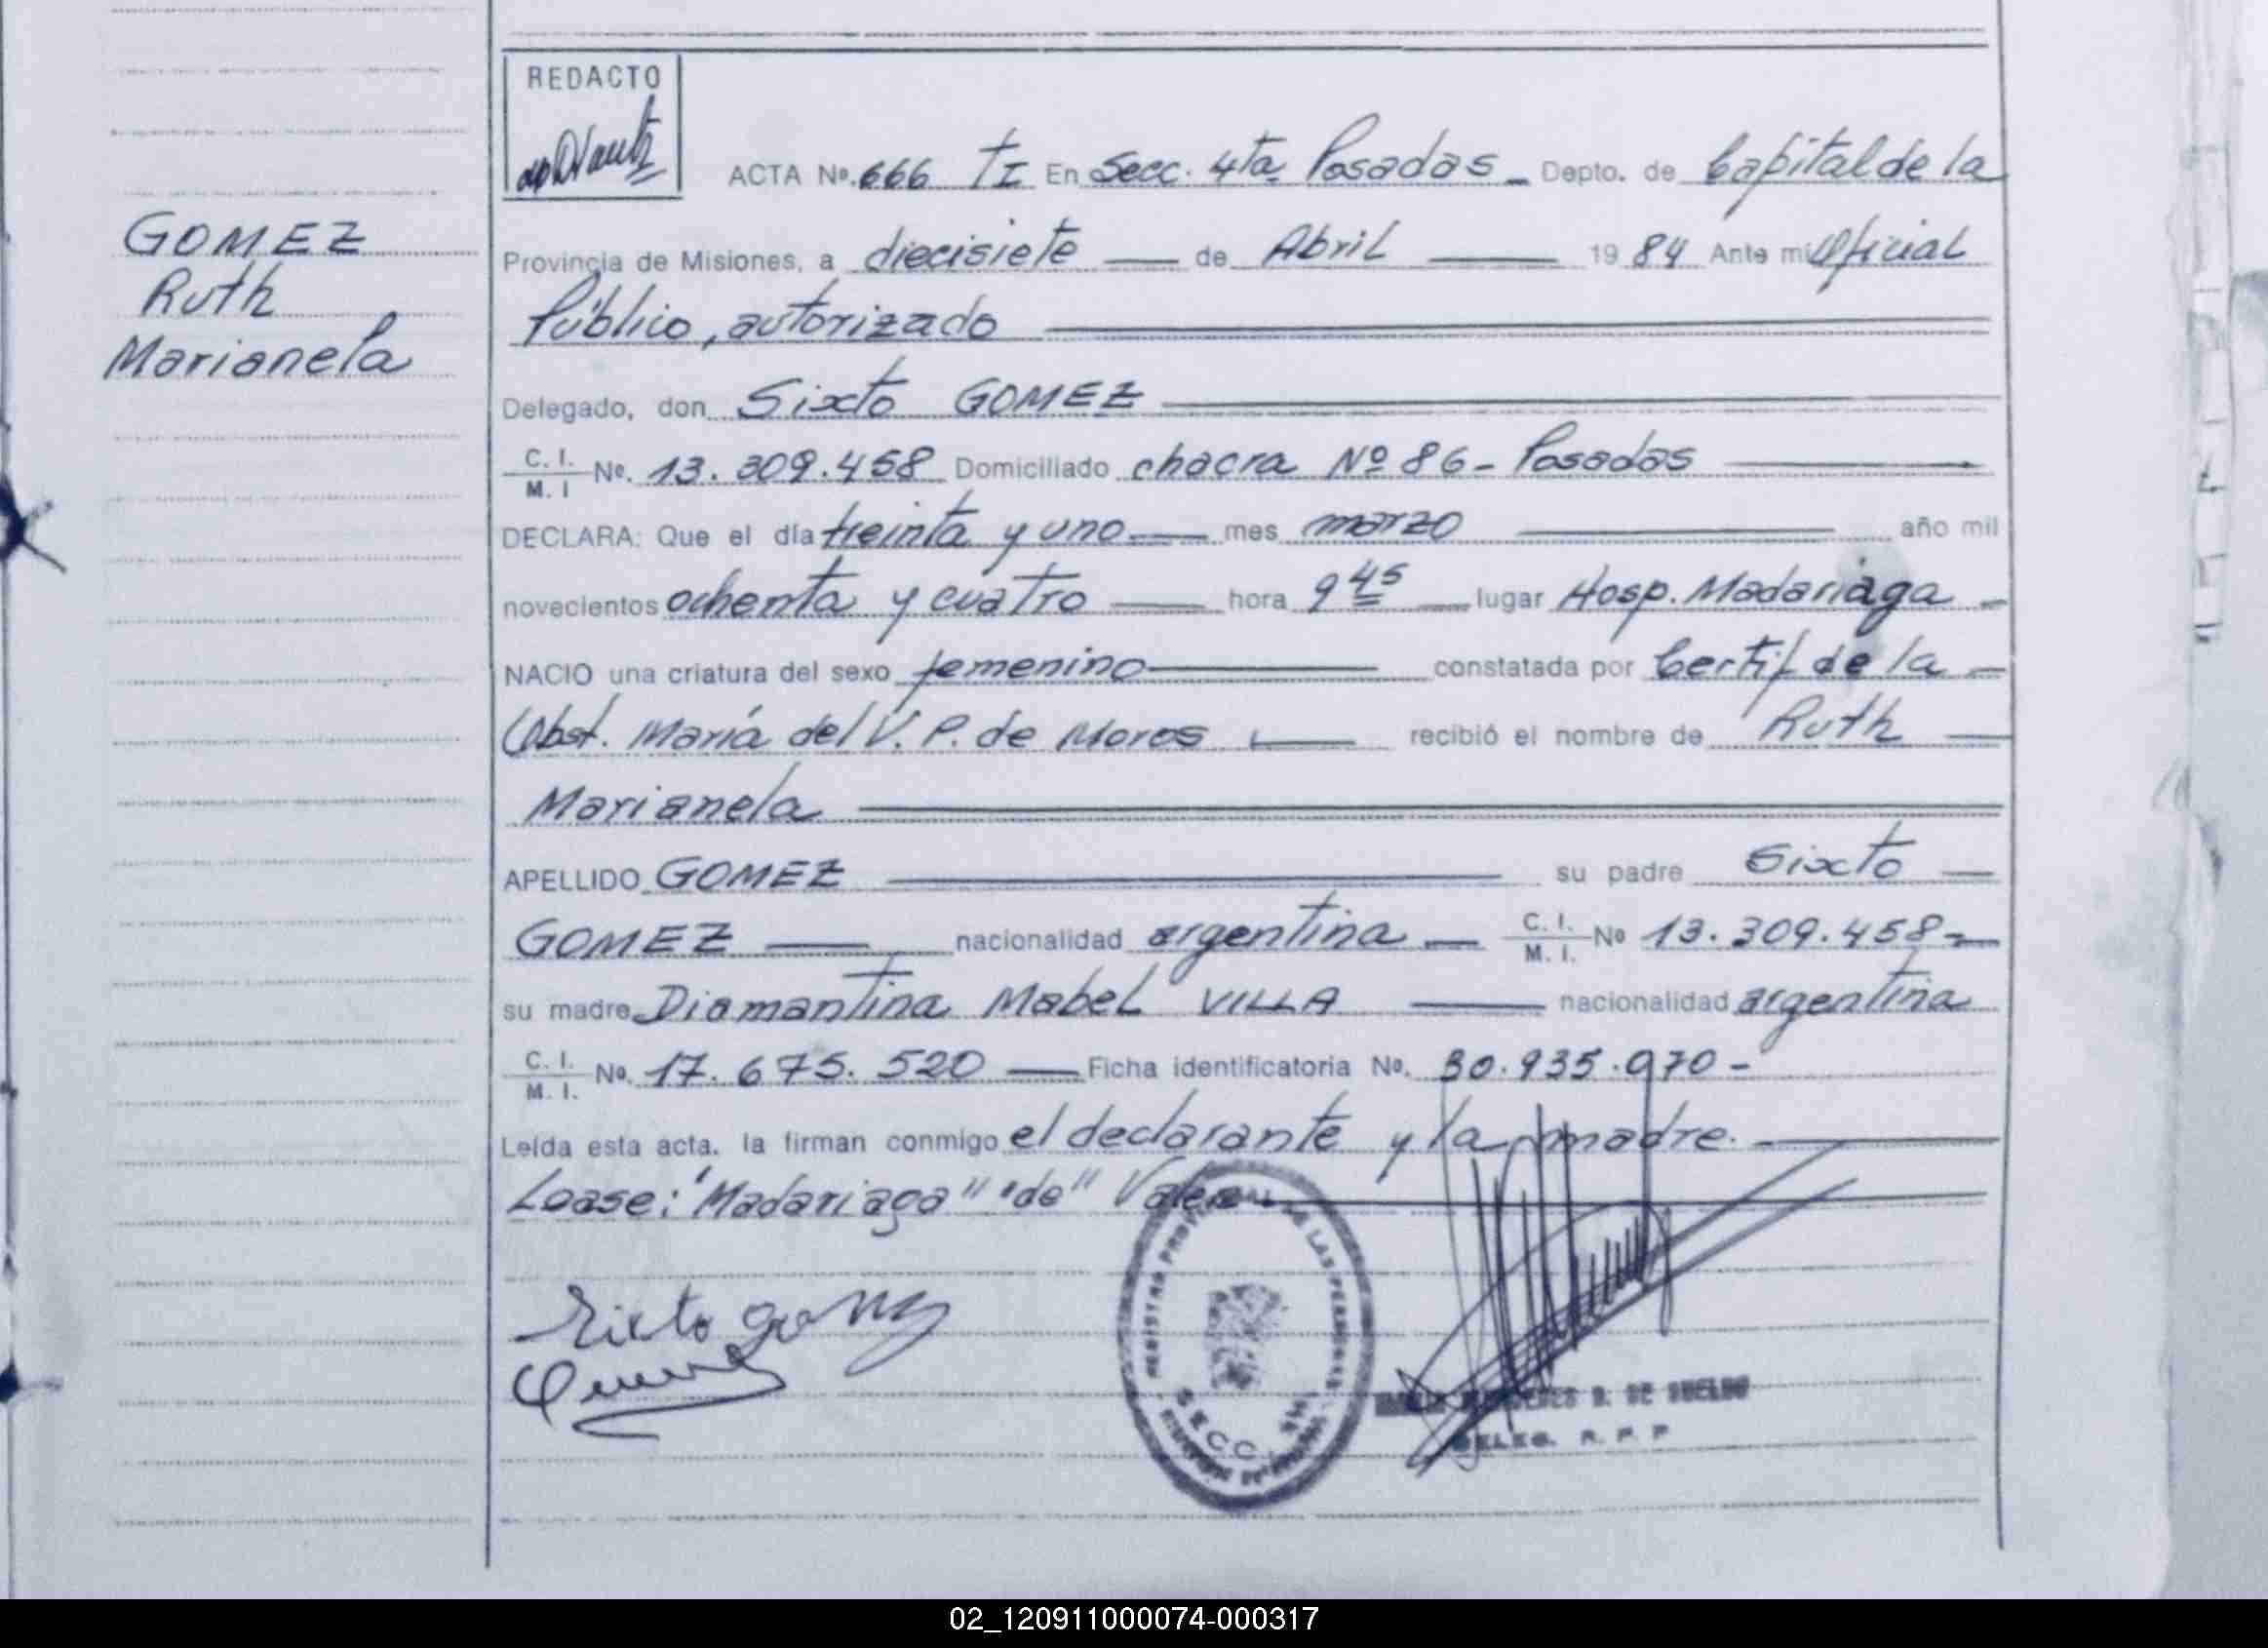 REDACTO
ACTA Nº. 666 TI En Secc. 4ta. Posadas - Depto. de Capital de la
GOMEZ
Ruth
Marianela
Provincia de Misiones, a diecisiete de Abril 19 84 Ante mi Oficial
Público, autorizado
Delegado, don Sixto GOMEZ
C. I. / M. I Nº. 13.309.458 Domiciliado chacra Nº 86 - Posadas
DECLARA: Que el día treinta y uno mes marzo año mil
novecientos ochenta y cuatro hora 9 45 lugar Hosp. Madariaga -
NACIO una criatura del sexo femenino constatada por Certif de la
Obst. María del V. P. de Moros recibió el nombre de Ruth
Marianela
APELLIDO GOMEZ su padre Sixto
GOMEZ nacionalidad argentina C. I. / M. I. Nº 13.309.458-
su madre Diamantina Mabel VILLA nacionalidad argentina
C. I. / M. I. Nº. 17.675.520 Ficha identificatoria No. 30.935.970 -
Leída esta acta, la firman conmigo el declarante y la madre.
Loase: "Madariaga" "de" Valen
Sixto Gomez
DE LAS PERSONAS
SECC
D. DE SUELDO
DELEG. R. P. P
02_120911000074-000317